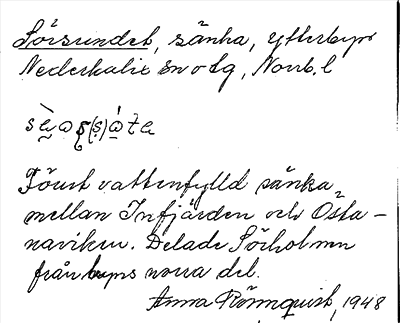 Sörsundet, sänka, Ytterbyn
Nederkalix sn o tg, Norrb. l
Förut vattenfylld sänka
mellan Infjärden och Östa-
naviken. Delade Sörholmen
från byns norra del.
Anna Rönnquist, 1948